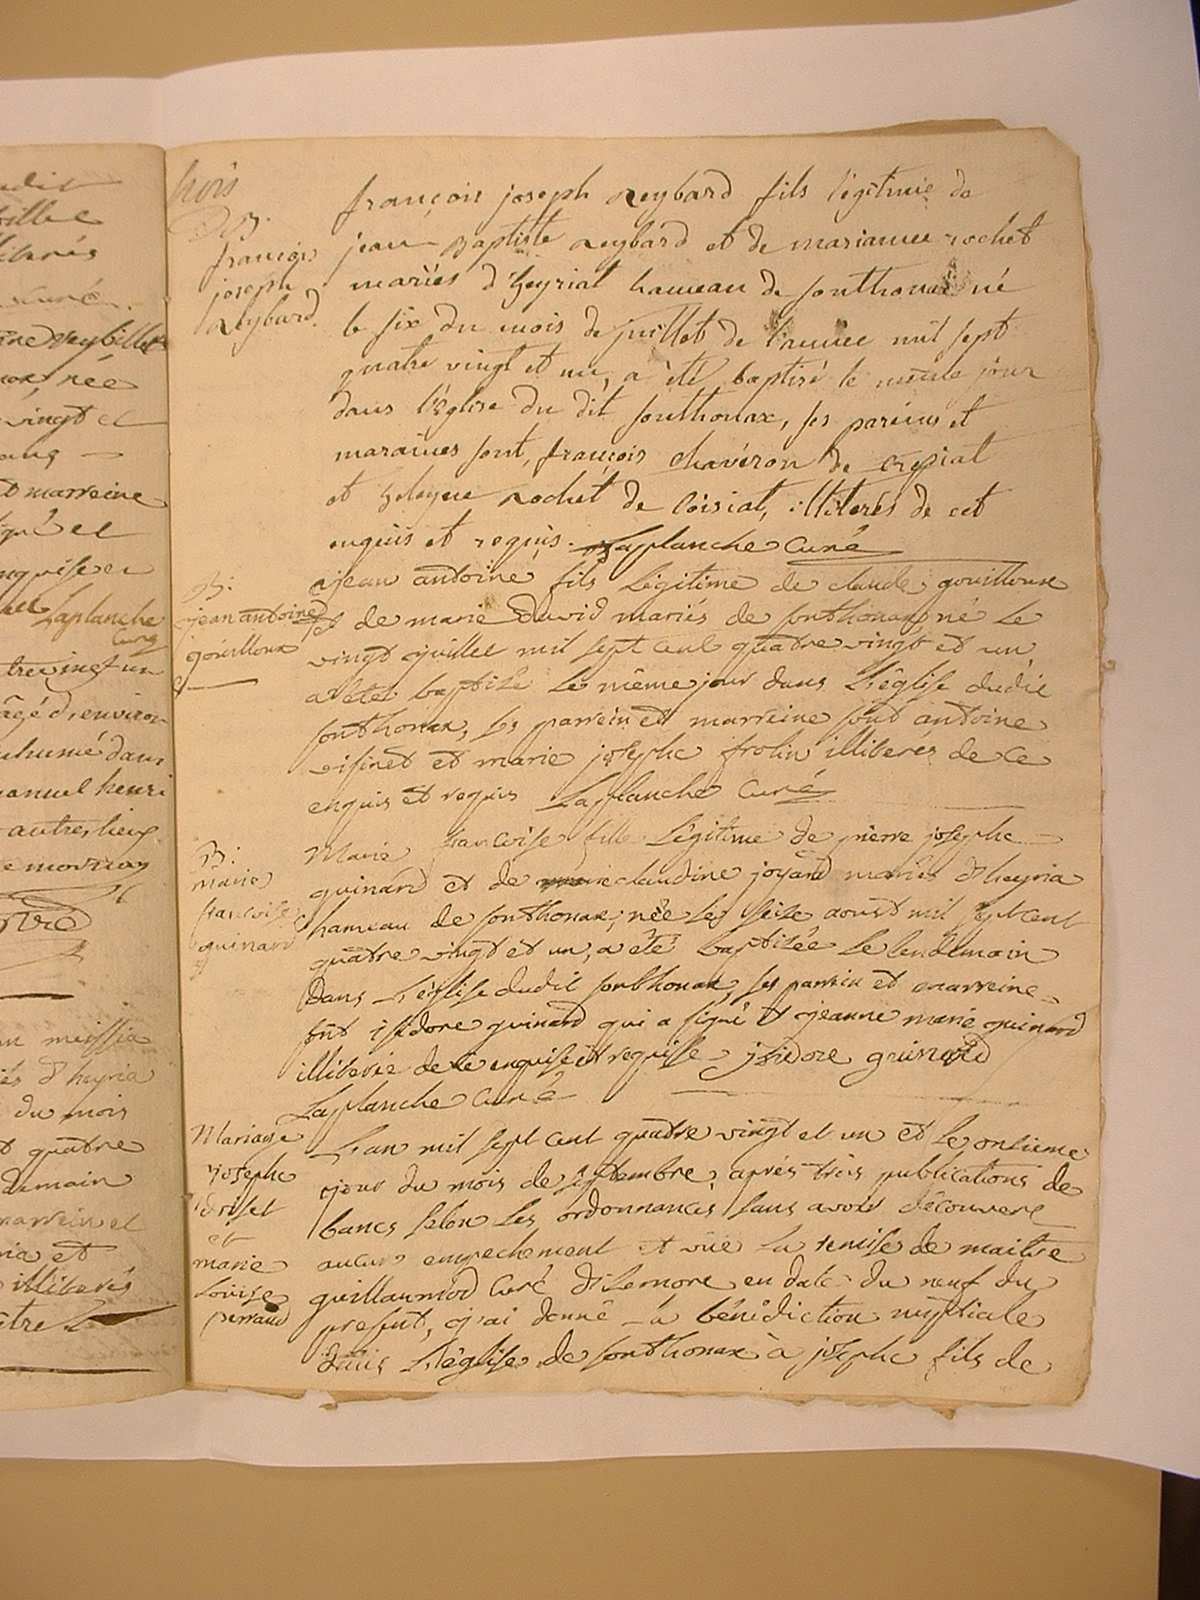 udit
fille
illiterés
curé.
reybillet
née
vingt et
marreine
et
enquise et
Laplanche
curé
vingt un
âgé d'environ
inhumé dans
emanuel henri
autres lieux
de mornay
meissia
d'heyria
du mois
quatre
demain
parrein et
et
illiterés
trois
B.
françois
joseph
Reybard.
françois joseph Reybard fils légitime de
jean Baptiste Reybard et de marianne rochet
mariés d'heyriat hameau de sonthonax né
le six du mois de juillet de l'année mil sept
quatre vingt et un, a été baptisé le même jour
dans l'église du dit sonthonax, ses pareins et
maraines sont, françois chavéron de
et rochet de Coisiat, illiterés de cet
enquis et requis. Laplanche Curé
B:
jean antoine
gouilloux
jean antoine fils Légitime de claude gouilloux
et de marie David mariés de sonthonax né le
vingt juillet mil sept cent quatre vingt et un
a été baptisé le même jour dans L'église dudit
sonthonax, ses parrein et marreine sont antoine
visinet et marie josephe frolin illiterés de ce
enquis et requis Laplanche Curé
B:
marie
francoise
guinard
Marie francoise fille Légitime de pierre josephe
guinard et de claudine joyard mariés d'heyria
hameau de sonthonax, née le seize aoust mil sept cent
quatre vingt et un, a été baptisée le lendemain
Dans L'église dudit sonthonax, ses parrein et marreine
sont isidore guinard qui a signé et jeanne marie guinard
illiterée de ce enquise et requise isidore guinard
Laplanche Curé
Mariage
joseph
et
marie
Louise
perraud
L'an mil sept cent quatre vingt et un et le onsieme
jour du mois de septembre, aprés trois publications de
bancs selon les ordonnances sans avoir découvert
aucun empechement et vüe la remise de maitre
guillaumod Curé en date du neuf du
present, j'ai donné la bénédiction nuptiale
dans L'église de sonthonax à josephe fils de